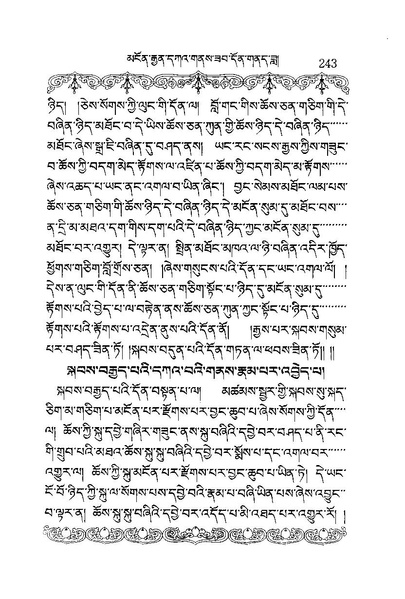 མངོན་རྒྱན་དཀའ་གནས་ཟབ་དོན་གནད་བླ།
243
ཉིད། །ཅེས་སོགས་ཀྱི་ལུང་གི་དོན་ལ། བློ་གང་གིས་ཆོས་ཅན་གཅིག་གི་དེ་
བཞིན་ཉིད་མཐོང་བ་དེ་ཡིས་ཆོས་ཅན་ཀུན་གྱི་ཆོས་ཉིད་དེ་བཞིན་ཉིད་......
མཐོང་ཞེས་སྒྲ་ཇི་བཞིན་དུ་བཤད་ནས། ཡང་རང་སངས་རྒྱས་ཀྱིས་གཟུང་
བ་ཆོས་ཀྱི་བདག་མེད་རྟོགས་ལ་འཛིན་པ་ཆོས་ཀྱི་བདག་མེད་མ་རྟོགས་....
ཞེས་འཆད་པ་ཡང་ནང་འགལ་བ་ཡིན་ཞིང་། བྱང་སེམས་མཐོང་ལམ་པས་
ཆོས་ཅན་གཅིག་གི་ཆོས་ཉིད་དེ་བཞིན་ཉིད་དེ་མངོན་སུམ་དུ་མཐོང་བས་..
ན་དྲི་མ་མཐའ་དག་གིས་དག་པའི་དེ་བཞིན་ཉིད་ཀྱང་མངོན་སུམ་དུ་......
མཐོང་བར་འགྱུར། དེ་ལྟར་ན། སྤྲིན་མཐོང་མཁའ་ལ་ཉི་བཞིན་འདིར་ཁྱོད་
ཕྱོགས་གཅིག་བློ་གྲོས་ཅན། །ཞེས་གསུངས་པའི་དོན་དང་ཡང་འགལ་ལོ། །
དེས་ན་ལུང་གི་དོན་ནི་ཆོས་ཅན་གཅིག་སྟོང་པ་ཉིད་དུ་མངོན་སུམ་དུ་......
རྟོགས་པའི་བྱེད་པ་ལ་བརྟེན་ནས་ཆོས་ཅན་ཀུན་ཀྱང་སྟོང་པ་ཉིད་དུ་......
རྟོགས་པའི་རྟོགས་པ་འདྲེན་ནུས་པའི་དོན་ནོ། །རྒྱས་པར་སྐབས་གསུམ་
པར་བཤད་ཟིན་ཏོ། །སྐབས་བདུན་པའི་དོན་གཏན་ལ་ཕབས་ཟིན་ཏོ།། །།
སྐབས་བརྒྱད་པའི་དཀའ་བའི་གནས་རྣམ་པར་འབྱེད་པ།
སྐབས་བརྒྱད་པའི་དོན་བསྟན་པ་ལ། མཚམས་སྦྱར་གྱི་སྐབས་སུ་སྐད་
ཅིག་མ་གཅིག་པ་མངོན་པར་རྫོགས་པར་བྱང་ཆུབ་པ་ཞེས་སོགས་ཀྱི་དོན་....
ལ། ཆོས་ཀྱི་སྐུ་དབྱེ་གཞིར་གཟུང་ནས་སྐུ་བཞིའི་དབྱེ་བར་བཤད་པ་ནི་རང་
གི་གྲུབ་པའི་མཐའ་ཆོས་སྐུ་སྐུ་བཞིའི་དབྱེ་བར་སྨོས་པ་དང་འགལ་བར་.....
འགྱུར་ལ། ཆོས་ཀྱི་སྐུ་མངོན་པར་རྫོགས་པར་བྱང་ཆུབ་པ་ཡིན་ཏེ། དེ་ཡང་
ངོ་བོ་ཉིད་ཀྱི་སྐུ་ལ་སོགས་པས་དབྱེ་བའི་རྣམ་པ་བཞི་ཡིན་པས་ཞེས་འབྱུང་
བ་ལྟར་ན། ཆོས་སྐུ་སྐུ་བཞིའི་དབྱེ་བར་འདོད་པ་མི་འཐད་པར་འགྱུར་རོ། །